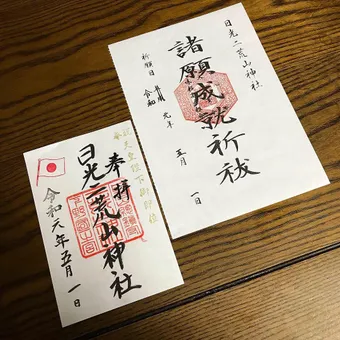 日光二荒山神社
諸願成就祈祓
祈願日
令和
元年
五月
一日
奉拝
日光二荒山神社
令和元年五月一日